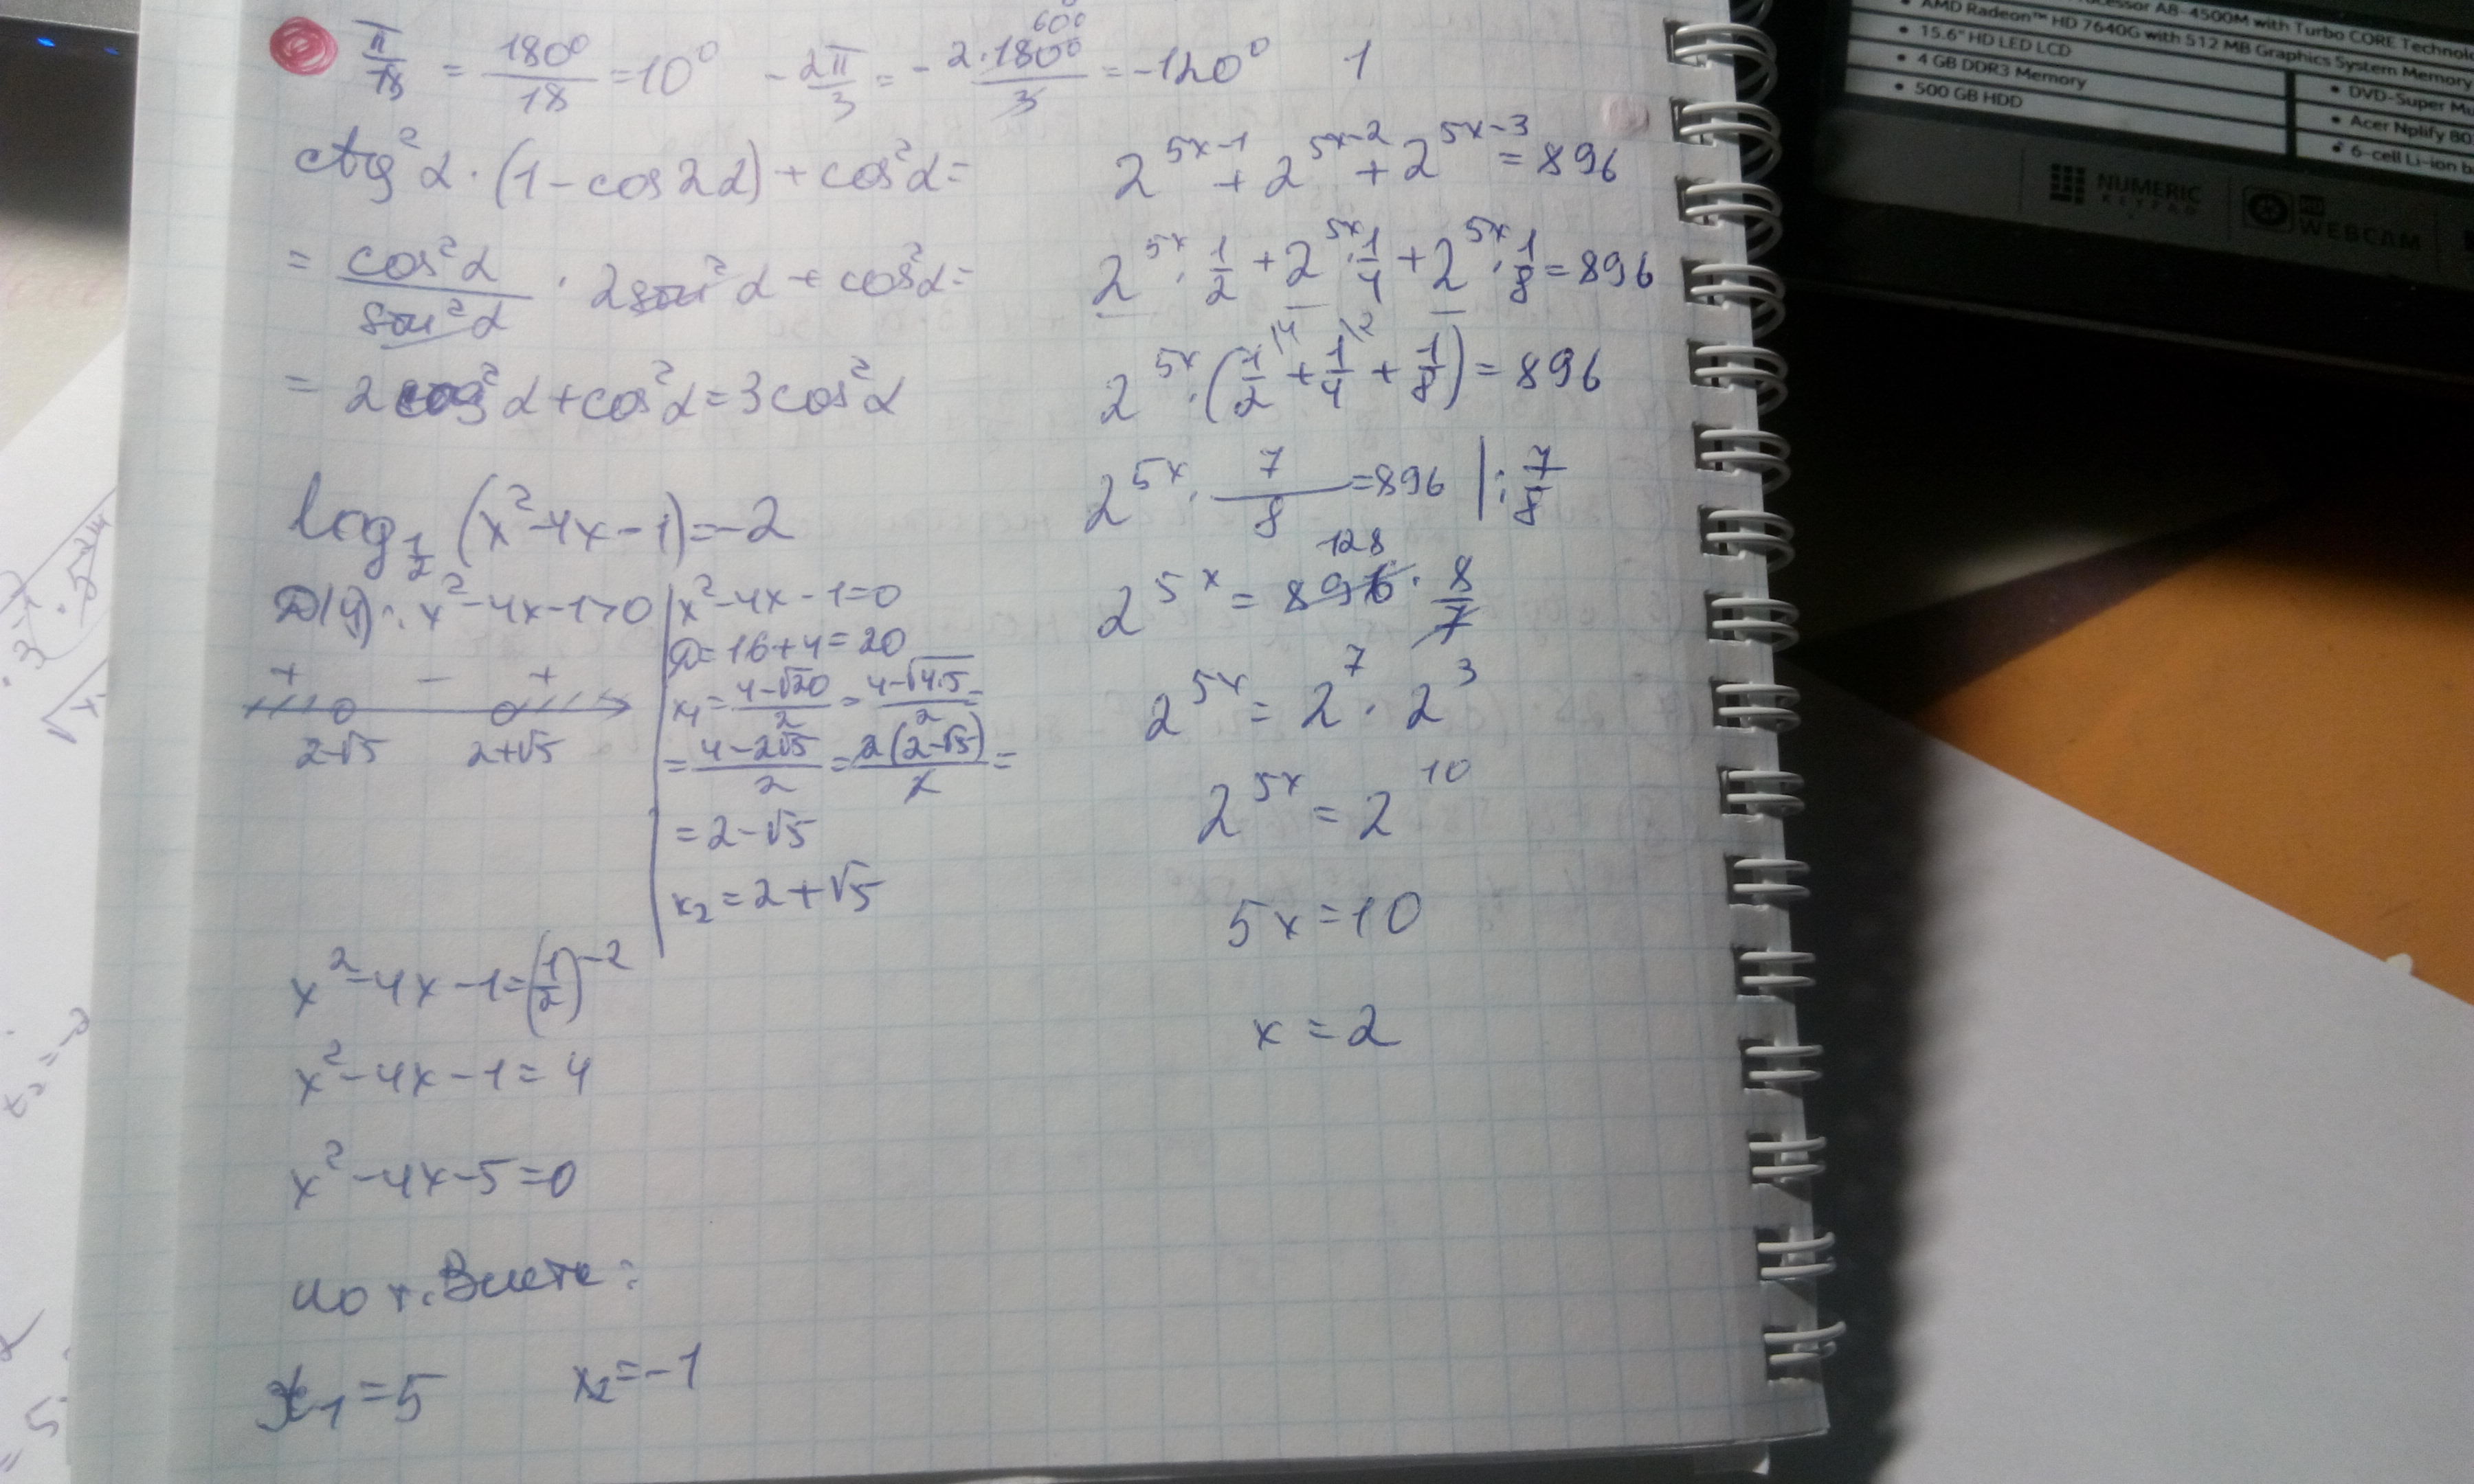 π/18 = 180⁰/18 = 10⁰   - 2π/3 = - 2·180⁰/3 = -120⁰   1
60⁰
ctg²α · (1 - cos2α) + cos²α =
= cos²α/sin²α · 2sin²α + cos²α =
= 2cos²α + cos²α = 3cos²α
log_{1/2} (x² - 4x - 1) = -2
D(y): x² - 4x - 1 > 0
+ - +
2-√5   2+√5
x² - 4x - 1 = 0
D = 16 + 4 = 20
x₁ = 4-√20/2 = 4-√4·5/2 =
= 4-2√5/2 = 2(2-√5)/2 =
= 2 - √5
x₂ = 2 + √5
x² - 4x - 1 = (1/2)⁻²
x² - 4x - 1 = 4
x² - 4x - 5 = 0
по т. Виета:
x₁ = 5   x₂ = -1
2^{5x-1} + 2^{5x-2} + 2^{5x-3} = 896
2^{5x} · 1/2 + 2^{5x} · 1/4 + 2^{5x} · 1/8 = 896
2^{5x} · (1/2 + 1/4 + 1/8) = 896
\4 \2
2^{5x} · 7/8 = 896 | : 7/8
128
2^{5x} = 896 · 8/7
2^{5x} = 2⁷ · 2³
2^{5x} = 2¹⁰
5x = 10
x = 2
A8-4500M with Turbo CORE
• AMD Radeon™ HD 7640G with 512 MB Graphics System Memory
• 15.6" HD LED LCD
• 4 GB DDR3 Memory
• 500 GB HDD
• DVD-Super
• Acer Nplify
• 6-cell Li-ion
NUMERIC
KEYPAD
HD
WEBCAM